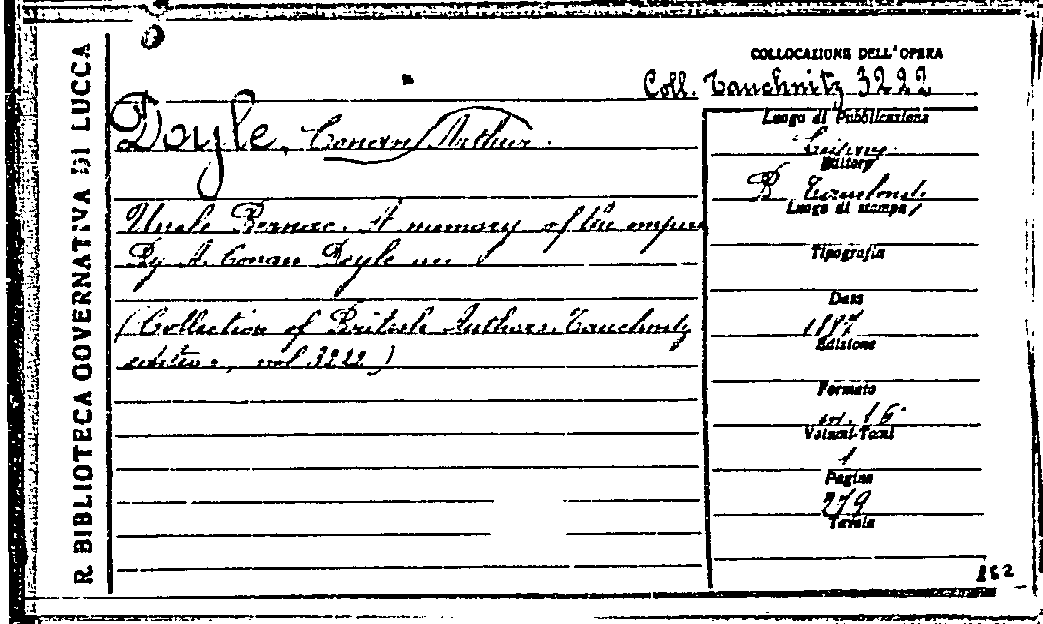 R. BIBLIOTECA GOVERNATIVA DI LUCCA
COLLOCAZIONE DELL'OPERA
Coll. Tauchnitz 3222
Doyle, Conan Arthur.
Uncle Bernac. A memory of the empire
By A. Conan Doyle
(Collection of British Authors. Tauchnitz
edition, vol 3222)
Luogo di Pubblicazione
Editore
B.
Luogo di stampa
Tipografia
Data
Edizione
Formato
in. 16°
Volumi-Tomi
1
Pagine
279
Tavole